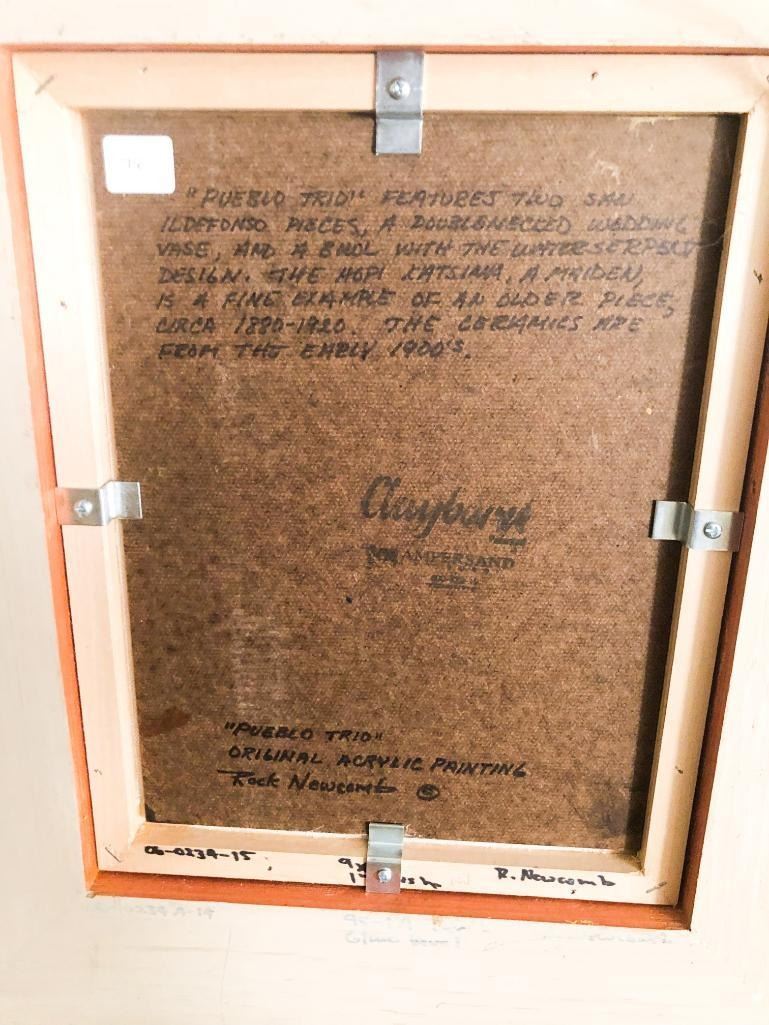 "PUEBLO TRIO" FEATURES TWO SAN
ILDEFONSO PIECES, A DOUBLENECKED WEDDING
VASE, AND A BOWL WITH THE WATERSERPENT
DESIGN. THE HOPI KATSINA, A MAIDEN,
IS A FINE EXAMPLE OF AN OLDER PIECE,
CIRCA 1880-1920. THE CERAMICS ARE
FROM THE EARLY 1900'S.
Claybord
AMPERSAND
"PUEBLO TRIO"
ORIGINAL ACRYLIC PAINTING
Rock Newcomb ©
06-0234-15
R. Newcomb